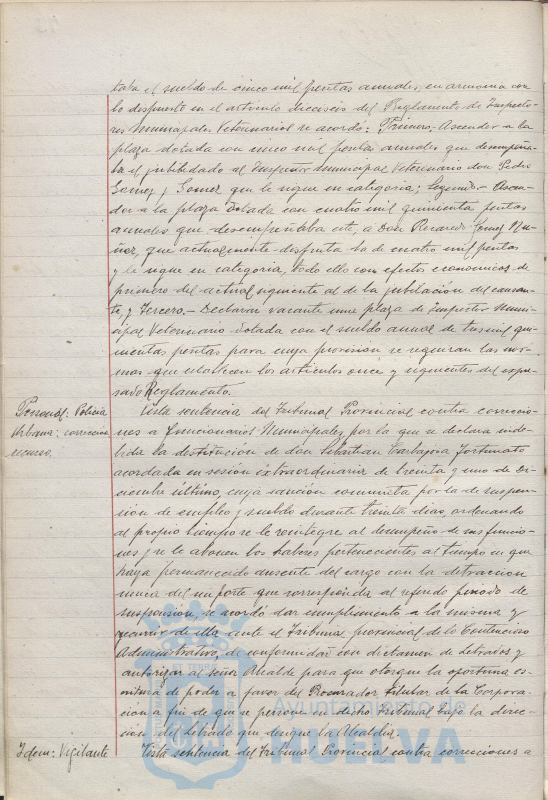 tada el sueldo de cinco mil pesetas anuales, en armonia con
lo dispuesto en el articulo dieciseis del Reglamento de Inspecto-
res Municipales Veterinarios se acordó: Primero.- Ascender a la
plaza dotada con cinco mil pesetas anuales que desempeña-
ba el jubilado al Inspector Municipal Veterinario don Pedro
Gomez y Gomez que le sigue en categoria; Segundo.- Ascen-
der a la plaza dotada con cuatro mil quinientas pesetas
anuales que desempeñaba este, a Don Ricardo Nu-
ñez, que actualmente disfruta la de cuatro mil pesetas
y le sigue en categoria, todo ello con efectos economicos de
primero del actual siguiente al de la jubilación del causan-
te, y Tercero.- Declarar vacante una plaza de Inspector Muni-
cipal Veterinario dotada con el sueldo anual de tres mil qui-
nientas pesetas para cuya provision se seguiran las nor-
mas que establecen los articulos once y siguientes del expre-
sado Reglamento.
Personal: Policia
Urbana; correccion
recurso.
Vista sentencia del Tribunal Provincial contra correccio-
nes a Funcionarios Municipales por la que se declara inde-
bida la destitucion de don Sebastian Carbajosa Fortunato
acordada en sesión extraordinaria de treinta y uno de Di-
ciembre último, cuya sanción conmuta por la de suspen-
sion de empleo y sueldo durante treinta dias, ordenando
al propio tiempo se le reintegre al desempeño de sus funcio-
nes y se le abonen los haberes pertenecientes al tiempo en que
haya permanecido ausente del cargo con la detraccion
unica del importe que corresponda al referido periodo de
suspension, se acordó dar cumplimiento a la misma y
recurrir de ella ante el Tribunal provincial de lo Contencioso
Administrativo, de conformidad con dictamen de Letrados y
autorizar al señor Alcalde para que otorgue la oportuna es-
critura de poder a favor del Procurador titular de la Corpora-
cion a fin de que se persone en dicho Tribunal bajo la direc-
cion del Letrado que designe la Alcaldia.
Idem: Vigilante
Vista sentencia del Tribunal Provincial contra correcciones a
Ayuntamiento de
HUELVA